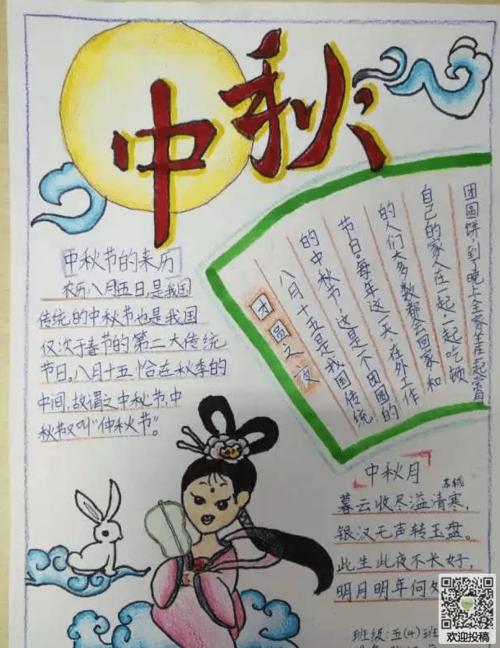 中秋
中秋节的来历
农历八月五日,是我国
传统的中秋节也是我国
仅次于春节的第二大传统
节日。八月十五恰在秋季的
中间,故谓之中秋节,中
秋节又叫“仲秋节”。
团圆之夜
八月十五是我国传统
的中秋节,这是一个团圆的
节日。每年这一天,在外工作
的人们大多数都会回家和
自己的家人在一起,一起吃顿
团圆饼,到了晚上全家坐一起赏
中秋月
苏轼
暮云收尽溢清寒,
银汉无声转玉盘。
此生此夜不长好,
明月明年何
班级:五(4)班
欢迎投稿